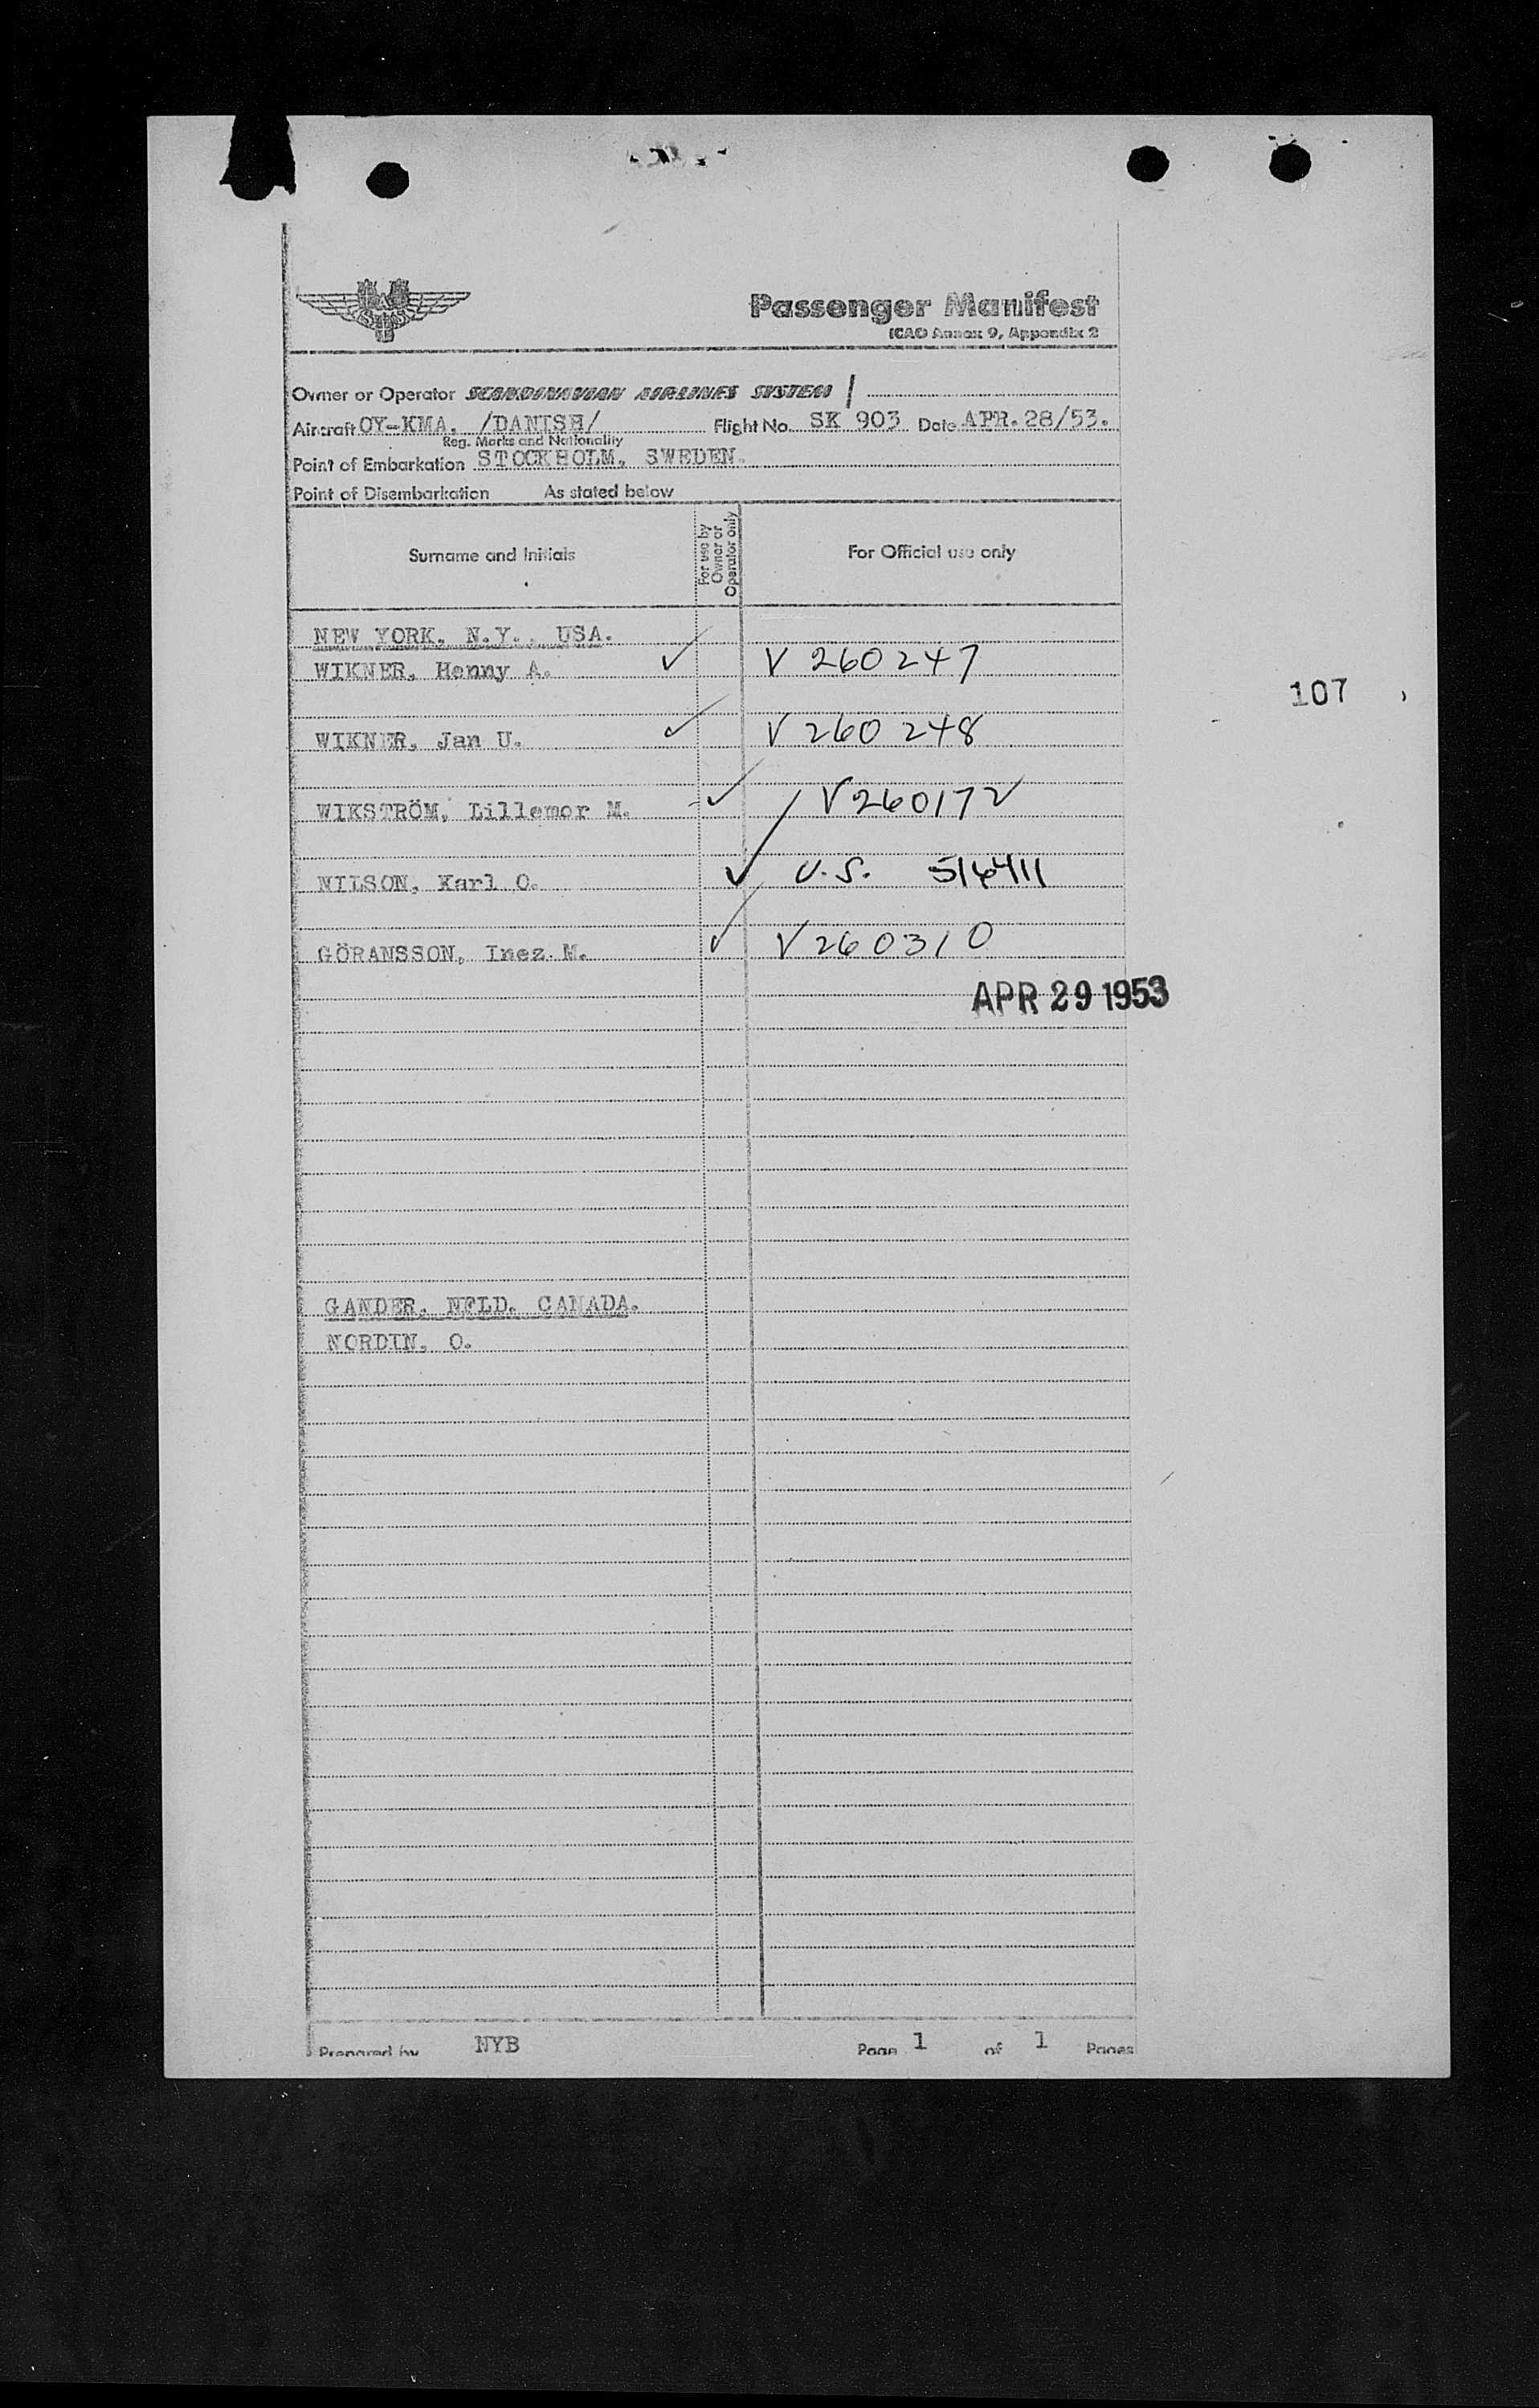 Passenger Manifest
ICAO Annex 9, Appendix 2
Owner or Operator SCANDINAVIAN AIRLINES SYSTEM
Aircraft OY-KMA. /DANISH/ Flight No. SK 903 Date APR.28/53.
Reg. Marks and Nationality
Point of Embarkation STOCKHOLM, SWEDEN.
Point of Disembarkation As stated below
Surname and Initials
For use by Owner or Operator only
For Official use only
NEW YORK, N.Y., USA.
WIKNER, Henny A. ✓ V 260247
107
WIKNER, Jan U. ✓ V 260 248
WIKSTRÖM, Lillemor M. ✓ V260172
NILSON, Karl O. ✓ U.S. 516411
GÖRANSSON, Inez M. ✓ V260310
APR 29 1953
GANDER, NFLD. CANADA.
NORDIN, O.
Prepared by NYB Page 1 of 1 Pages